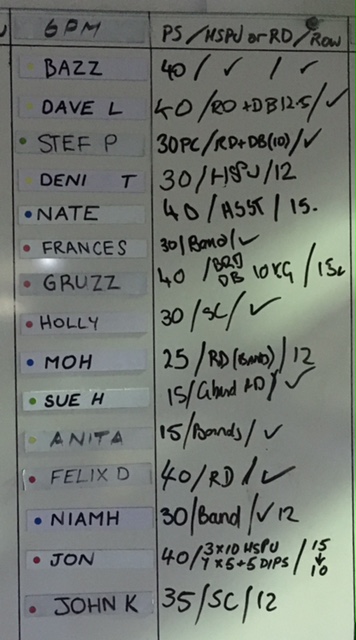 6PM PS/HSPU or RD/Row
BAZZ 40/✓/✓
DAVE L 40/RD+DB12.5/✓
STEF P 30PC/RD+DB(10)/✓
DENI T 30/HSPU/12
NATE 40/ASST/15.
FRANCES 30/Band/✓
GRUZZ 40/BRD DB 10KG/15c
HOLLY 30/SC/✓
MOH 25/RD(BAND)/12
SUE H 15/Gband RD/✓
ANITA 15/Bands/✓
FELIX D 40/RD/✓
NIAMH 30/Band/✓12
JON 40/3x10 HSPU 7x5+5DIPS/15↓10
JOHN K 35/SC/12